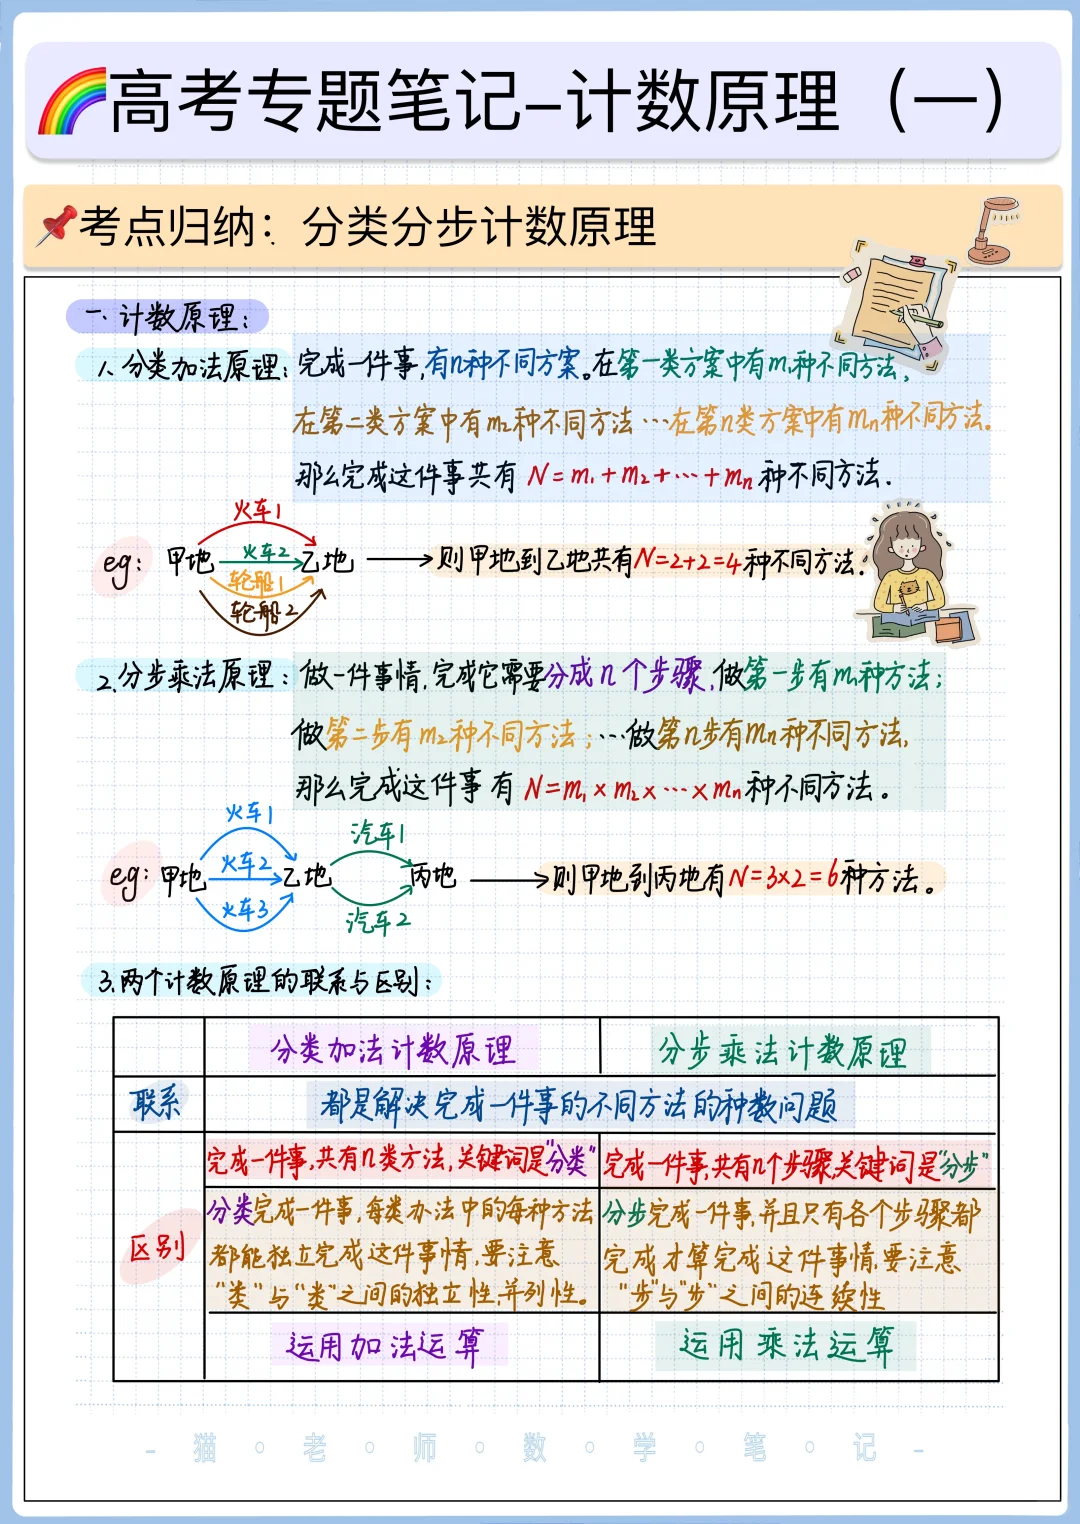 高考专题笔记-计数原理（一）
考点归纳：分类分步计数原理
一、计数原理：
1、分类加法原理：完成一件事，有n种不同方案。在第一类方案中有m₁种不同方法，
在第二类方案中有m₂种不同方法…在第n类方案中有mn种不同方法。
那么完成这件事共有 N=m₁+m₂+…+mn 种不同方法.
火车1
eg：甲地 火车2 乙地 → 则甲地到乙地共有N=2+2=4种不同方法.
轮船1
轮船2
2、分步乘法原理：做一件事情，完成它需要分成n个步骤，做第一步有m₁种方法；
做第二步有m₂种不同方法；…做第n步有mn种不同方法，
那么完成这件事有 N=m₁×m₂×…×mn种不同方法。
火车1 汽车1
eg：甲地 火车2 乙地 丙地 → 则甲地到丙地有N=3×2=6种方法。
火车3 汽车2
3、两个计数原理的联系与区别：
分类加法计数原理 分步乘法计数原理
联系 都是解决完成一件事的不同方法的种数问题
完成一件事，共有n类方法，关键词是"分类" 完成一件事，共有n个步骤，关键词是"分步"
区别
分类完成一件事，每类办法中的每种方法 分步完成一件事，并且只有各个步骤都
都能独立完成这件事情，要注意 完成才算完成这件事情，要注意
"类"与"类"之间的独立性，并列性。 "步"与"步"之间的连续性
运用加法运算 运用乘法运算
- 猫·老·师·数·学·笔·记 -